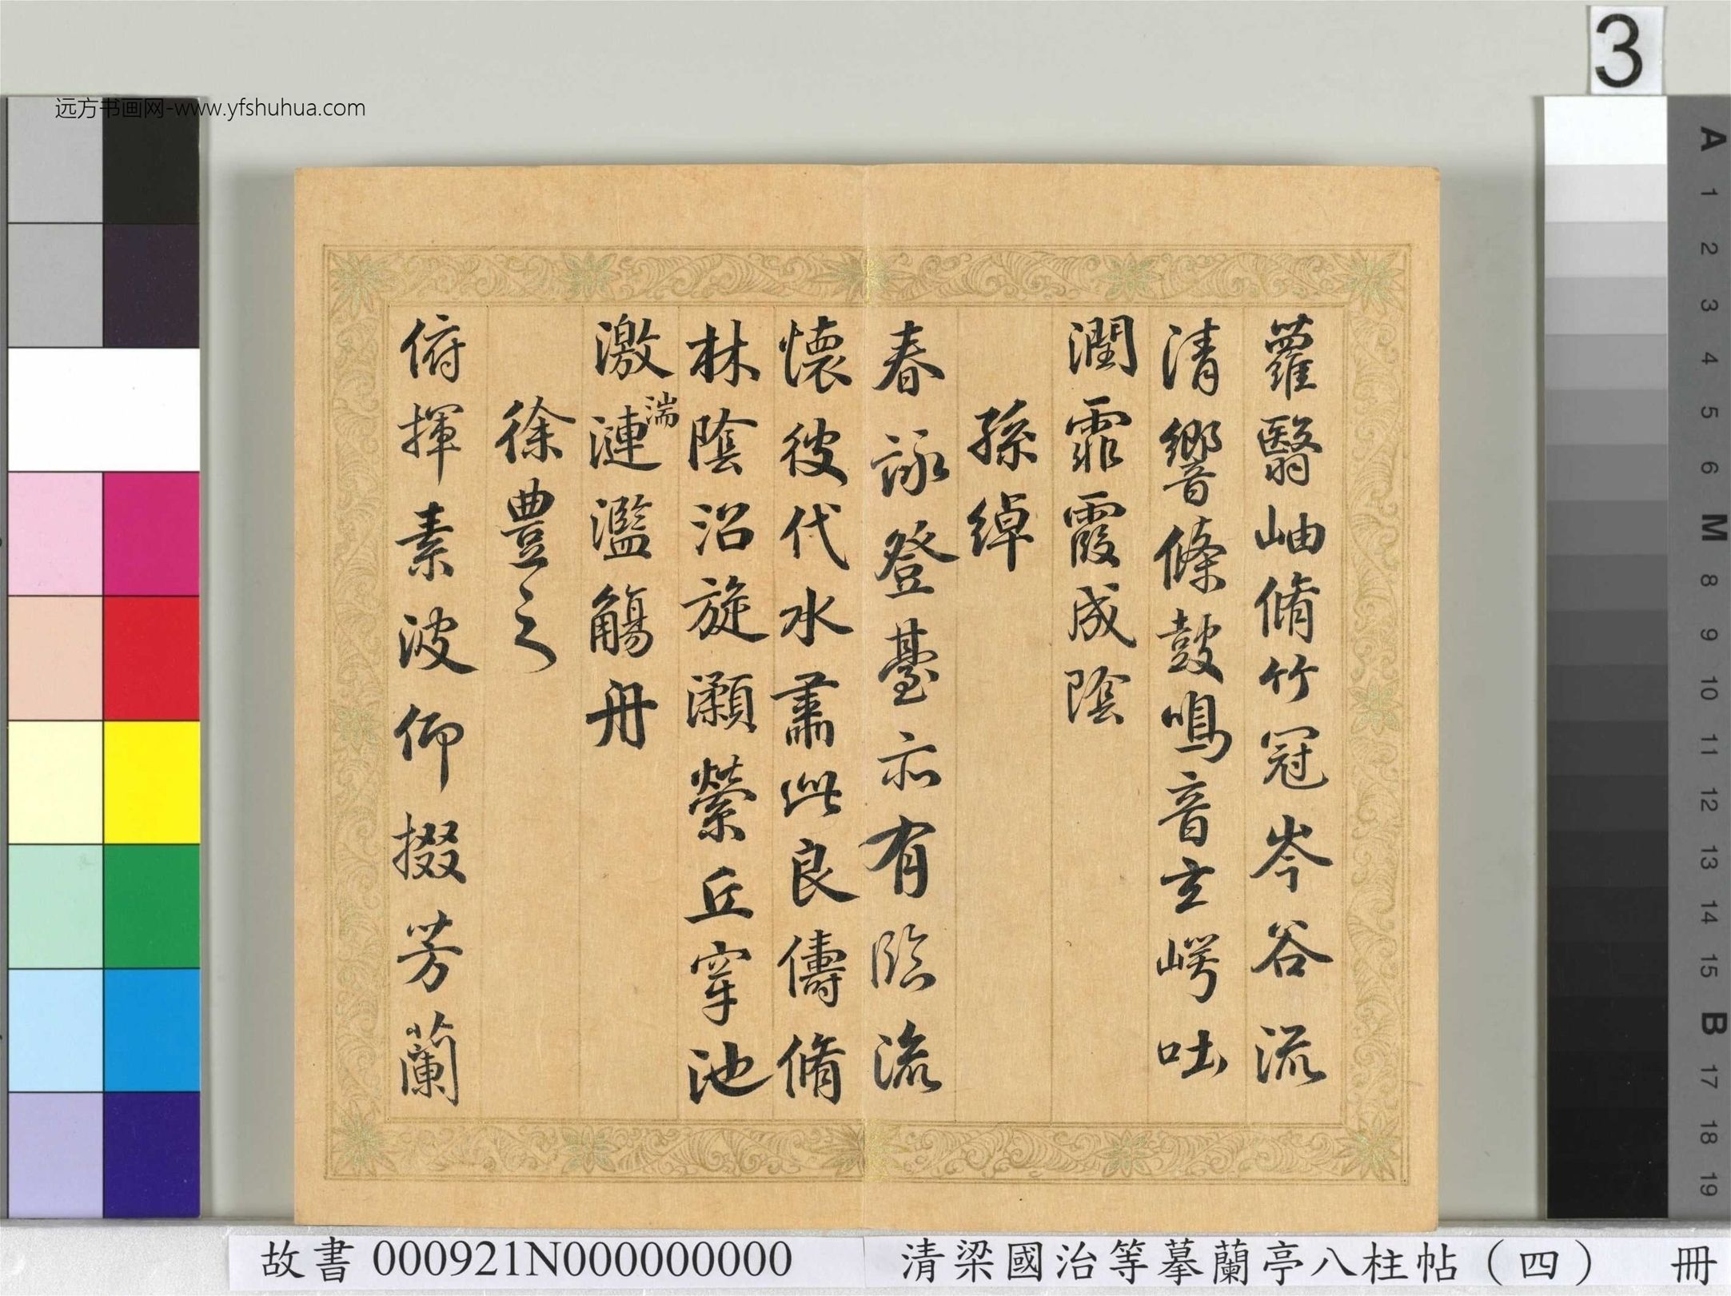 3
远方书画网-www.yfshuhua.com
蘿翳岫脩竹冠岑谷流
清響條鼓鳴音玄崿吐
潤霏霞成陰
孫綽
春詠登臺亦有臨流
懷彼伐水肅此良儔脩
林陰沼旋瀨縈丘穿池
激湍漣濫觴舟
徐豊之
俯揮素波仰掇芳蘭
A
1
2
3
4
5
6
M
8
9
10
11
12
13
14
15
B
17
18
19
故書 000921N000000000
清梁國治等摹蘭亭八柱帖（四） 冊